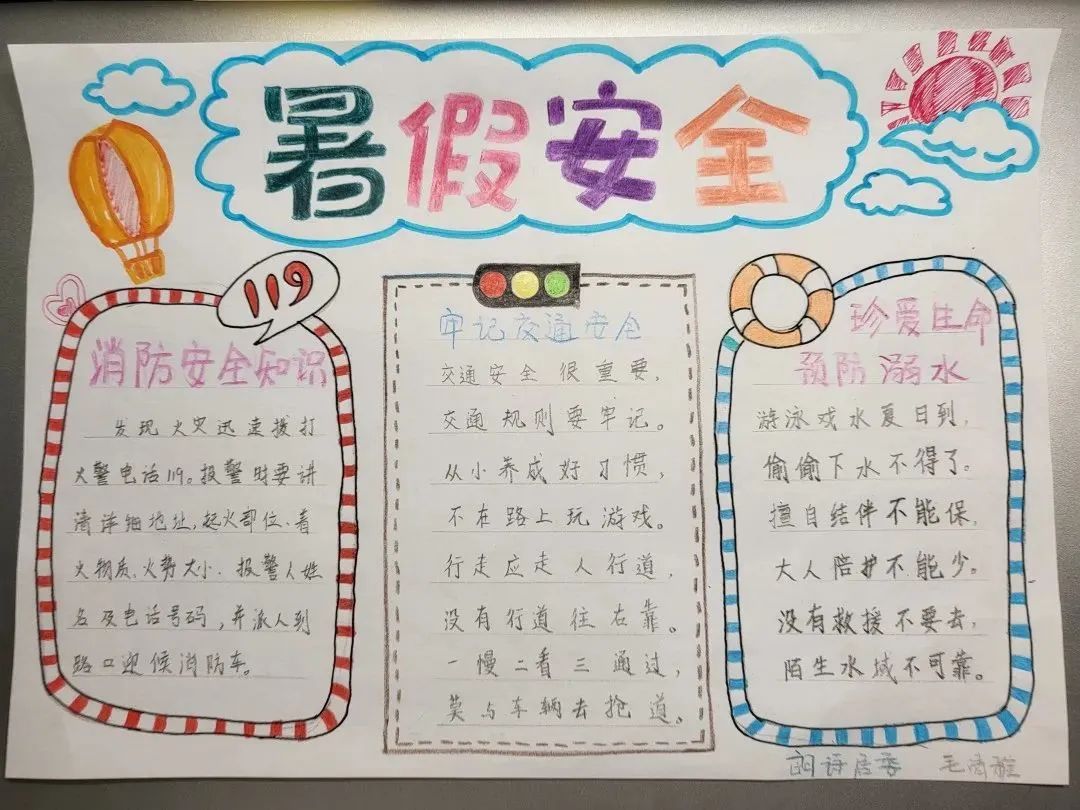 暑假安全
119
消防安全知识
发现火灾迅速拨打
火警电话119。报警时要讲
清详细地址,起火部位、着
火物质、火势大小、报警人姓
名及电话号码,并派人到
路口迎候消防车。
牢记交通安全
交通安全很重要,
交通规则要牢记。
从小养成好习惯,
不在路上玩游戏。
行走应走人行道,
没有行道往右靠。
一慢二看三通过,
莫与车辆去抢道。
珍爱生命
预防溺水
游泳戏水夏日到,
偷偷下水不得了。
擅自结伴不能保,
大人陪护不能少。
没有救援不要去,
陌生水域不可靠。